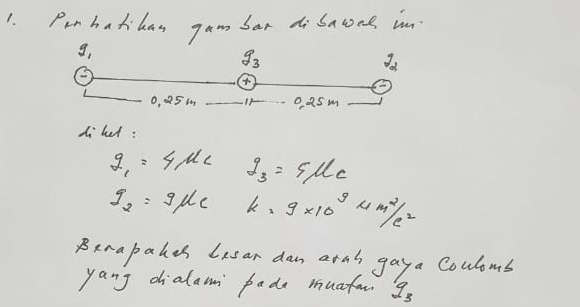 1. Perhatikan gambar dibawah ini.
q₁ q₃ q₂
- + -
0,25 m 0,25 m
diket :
q₁ = 4 μc q₃ = 5 μc
q₂ = 9 μc k = 9 x10⁹ N m²/c²
Berapakah besar dan arah gaya Coulomb
yang dialami pada muatan q₃